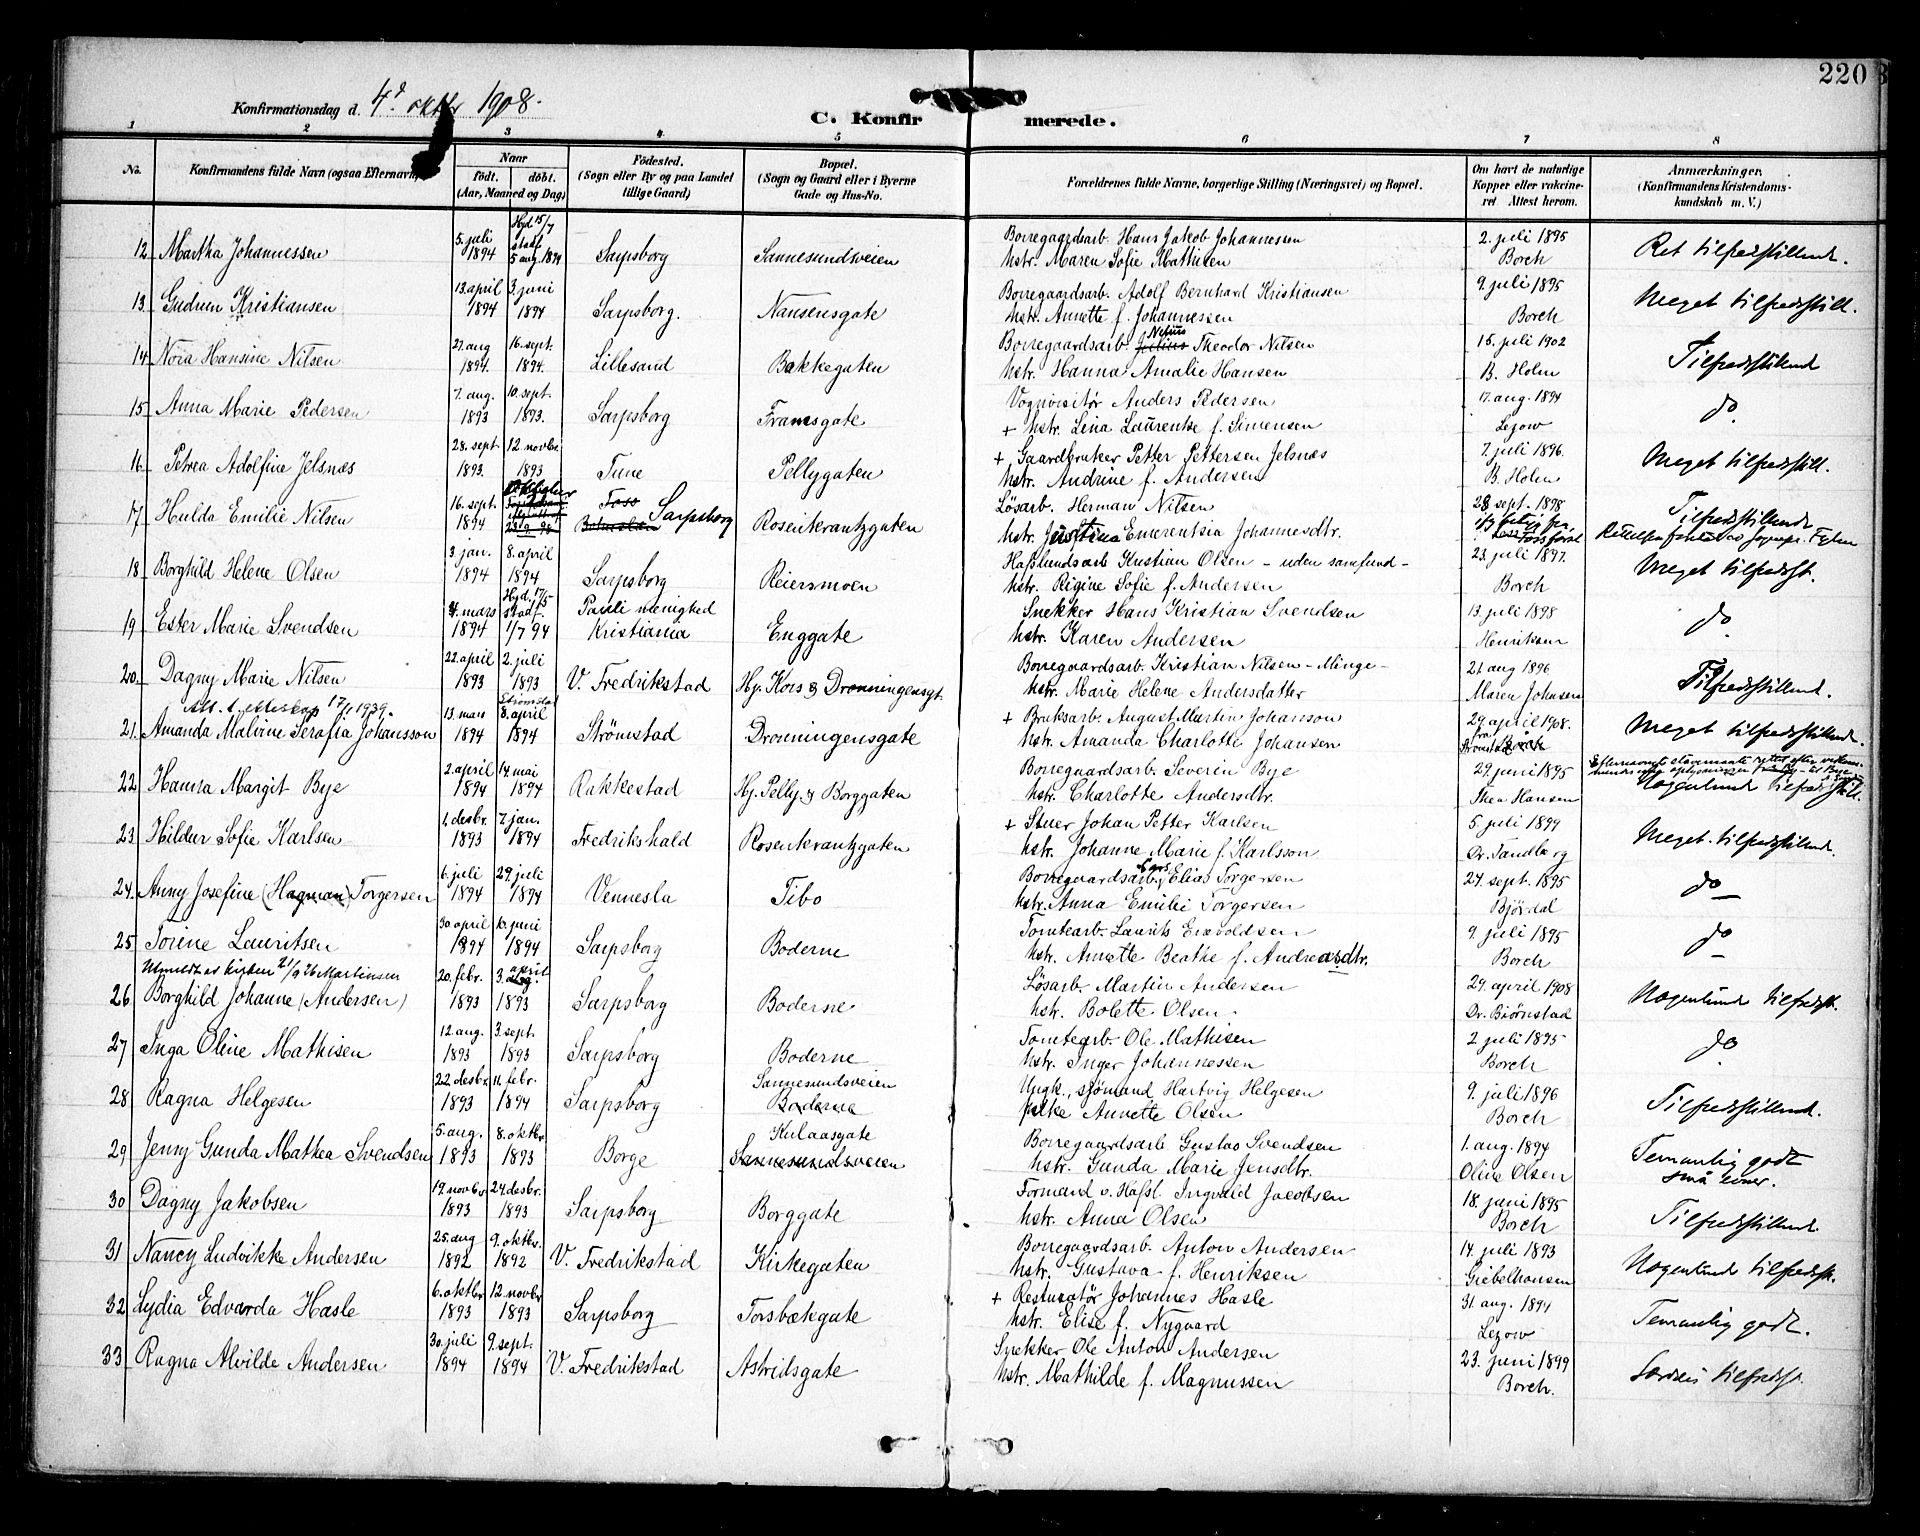 220
Konfirmationsdag d. 4d oktbr 1908.
C. Konfirmerede.
1 2 3 4 5 6 7 8
No. Konfirmandens fulde Navn (ogsaa Efternavn) Naar født. døbt. (Aar, Maaned og Dag) Fødested. (Sogn eller By og paa Landet tillige Gaard) Bopæl. (Sogn og Gaard eller i Byerne Gade og Hus-No. Forældrenes fulde Navne, borgerlige Stilling (Næringsvei) og Bopæl. Om havt de naturlige Kopper eller vaccineret Attest herom. Anmærkninger. (Konfirmandens Kristendomskundskab m. V.)
12 Martha Johannessen 5. juli 1894 Hjd. 15/7 stadf. 5 aug. 1894 Sarpsborg Sannesundsveien Borregaardsarb. Hans Jakob Johannessen 2. juli 1895 Ret tilfredsstillende.
hstr. Maren Sofie Mathisen Borch
13. Gudrun Kristiansen 13. april 1894 3. juni 1894 Sarpsborg. Nansensgate Borregaardsarb. Adolf Bernhard Kristiansen 9. juli 1895 Meget tilfredsstill.
hstr. Annette f. Johannessen Borch
14 Nora Hansine Nilsen 27. aug 1894. 16. sept. 1894. Lillesand Bakkegaten Borregaardsarb. Julius Nelius Theodor Nilsen 15. juli 1902 Tilfredsstillende
hstr. Hanna Amalie Hansen B. Holm
15 Anna Marie Pedersen 7. aug. 1893 10. sept. 1893. Sarpsborg Framsgate Vognvisitør Anders Pedersen 17. aug. 1894 do.
+ hstr. Lina Laurentze f. Simensen Lezow
16 Petrea Adolfine Jelsnæs 28. sept 1893. 12. novbr. 1893 Tune Pellygaten + Gaardbruker Petter Pettersen Jelsnæs 7. juli 1896. Meget tilfredsstill.
hstr. Andrine f. Andersen B. Holm
17. Hulda Emilie Nilsen 16. sept. 1894 Foss Sarpsborg Rosenkrantzgaten Løsarb. Herman Nilsen 28 sept. 1898 Tilfredsstillende
hstr. Justina Emerentsia Johannesdtr.
18 Borghild Helene Olsen 3. jan. 1894 8. april 1894 Sarpsborg Reiersmoen Hafslundsarb Kristian Olsen – uden samfund – 23. juli 1897. Meget tilfredsst.
hstr. Rigine Sofie f. Andersen Borch
19 Ester Marie Svendsen 4. mars 1894 Hjd. 17/5 stadf. 1/7 94 Pauli menighed Kristiania Enggate Snekker Hans Kristian Svendsen 13. juli 1898 do.
hstr. Karen Andersen Henriksen
20. Dagny Marie Nilsen 22. april 1893 2. juli 1893 V. Fredrikstad Hj. Kors & Dronningensgt. Borregaardsarb. Kristian Nilsen – Minge – 21. aug 1896 Tilfredsstillende.
hstr. Marie Helene Andersdatter Maren Johnsen
Att. t. ekteskap 17/1 1939.
21. Amanda Malvine Serafia Johansson 13. mars 1894 Strømstad 8. april 1894 Strømstad Dronningensgate + Bruksarb. August Martin Johanson 29. april 1908. Meget tilfredsstillende.
hstr. Amanda Charlotte Johansen fra Strømstad Borch
22 Hanna Margit Bye 2. april 1894 14. mai 1894 Rakkestad Hj. Pelly. & Borggaten Borregaardsarb. Severin Bye 29. juni 1895 Nogenlunde tilfredsstill.
hstr. Charlotte Andersdtr. Thea Hansen
23 Hildur Sofie Karlsen 1. desbr. 1893 7. jan. 1894 Fredrikshald Rosenkrantzgaten + Stuer Johan Petter Karlsen 5. juli 1899 Meget tilfredsstillende.
hstr. Johanne Marie f. Karlsson Dr. Sandberg
24. Anny Josefine (Hagman) Torgersen 6. juli 1894 29. juli 1894 Vennesla Tibo Borregaardsarb. Lars Elias Torgersen 24. sept. 1895 do
hstr. Anna Emilie Torgersen Bjørdal
25 Torine Lauritsen 30. april 1894 10. juni 1894 Sarpsborg Boderne Tomtearb. Laurits Enevoldsen 9. juli 1895 do
hstr. Annette Beathe f. Andreasdtr. Borch
Utmeldt av kirken 21/9 26 Martinsen
26 Borghild Johanne (Andersen) 20. febr. 1893 3. april 1893 Sarpsborg Boderne Løsarb. Martin Andersen 29. april 1908 Nogenlunde tilfredsst.
hstr. Bolette Olsen Dr. Biørnstad
27 Inga Oline Mathisen 12. aug. 1893 3. sept. 1893 Sarpsborg Boderne Tomtearb. Ole Mathisen 2 juli 1895 do.
hstr. Inger Johannessen Borch
28 Ragna Helgesen 22. desbr. 1893 11. febr. 1894 Sarpsborg Sannesundsveien Boderne Ungk., sjömand Hartvig Helgesen 9. juli 1896 Tilfredsstillende.
pike Annette Olsen Borch
29 Jenny Gunda Mathea Svendsen 5. aug. 1893 8. oktbr 1893 Borge Kulaasgate Sannesundsveien Borregaardsarb Gustav Svendsen 1. aug. 1894 Temmelig godt
hstr. Gunda Marie Jensdtr. Oline Olsen små evner.
30 Dagny Jakobsen 19. novbr 1893 24. desbr. 1893 Sarpsborg Borggate Formand v. Hafsl. Ingvald Jacobsen 18. juni 1895 Tilfredsstillende.
hstr. Anna Olsen Borch
31 Nancy Ludvikke Andersen 25. aug 1892 9. oktbr. 1892 V. Fredrikstad Kirkegaten Borregaardsarb. Anton Andersen 14. juli 1893 Nogenlunde tilfredsst.
hstr. Gustava f. Henriksen Giebelhausen
32 Lydia Edvarda Hasle 6. oktbr 1893 12. novbr 1893 Sarpsborg Torsbækgate + Resturatör Johannes Hasle 31. aug. 1894 Temmelig godt.
hstr. Elise f. Nygaard Lezow
33 Ragna Alvilde Andersen 30. juli 1894 9. sept. 1894 V. Fredrikstad Astridsgate Snekker Ole Anton Andersen 23. juni 1899 Særdeles tilfredsst.
hstr. Mathilde f. Magnussen Borch.